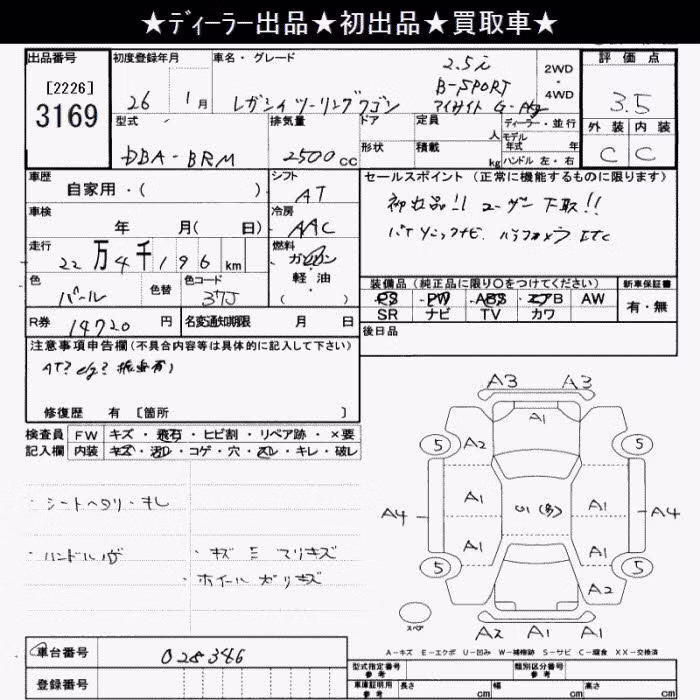 ★ﾃﾞｨｰﾗｰ出品★初出品★買取車★
出品番号
[2226]
3169
初度登録年月
26年 1月
車名・グレード
レガシィツーリングワゴン
2.5i
B-SPORT
アイサイト G-Pkg
2WD
・
4WD
評価点
3.5
外装 内装
C C
型式
DBA-BRM
排気量
2500cc
ドア
形状
定員 人
積載 kg
ディーラー・並行
モデル
年式 年
ハンドル 左・右
車歴
自家用・( )
シフト
AT
セールスポイント (正常に機能するものに限ります)
初出品!! ユーザー下取!!
パナソニックナビ. バックカメラ ETC
車検
年 月( 日)
冷房
AAC
走行
22万4千196km
燃料
ガソリン
軽・油
( )
色
パール
色替
色コード
37J
装備品 (純正品に限り〇をつけてください)
PS PW ABS エアB AW
SR ナビ TV カワ
新車保証書
有・無
R券 14720円
名変通知期限 月 日
後日品
注意事項申告欄 (不具合内容等は具体的に記入して下さい)
AT? e/g? 振動有り
修復歴 有 [箇所 ]
検査員
記入欄
FW キズ・飛石・ヒビ割・リペア跡・×要
内装 キズ・汚レ・コゲ・穴・スレ・キレ・破レ
・シートヘタリ・キレ
・ハンドル
・キズ ミミズリキズ
・ホイールガリキズ
A3 A3
A1
5 A2 5
A1 A1
A4 U1(多) A4
A1 A1
5 5
A2
A2 A1 A1
スペア
A-キズ E-エクボ U-凹み W-補修跡 S-サビ C-腐食 XX-交換済
車台番号 028346
登録番号
型式指定番号
参考
類別区分番号
参考
車庫証明用
参考
長さ cm
幅 cm
高さ cm